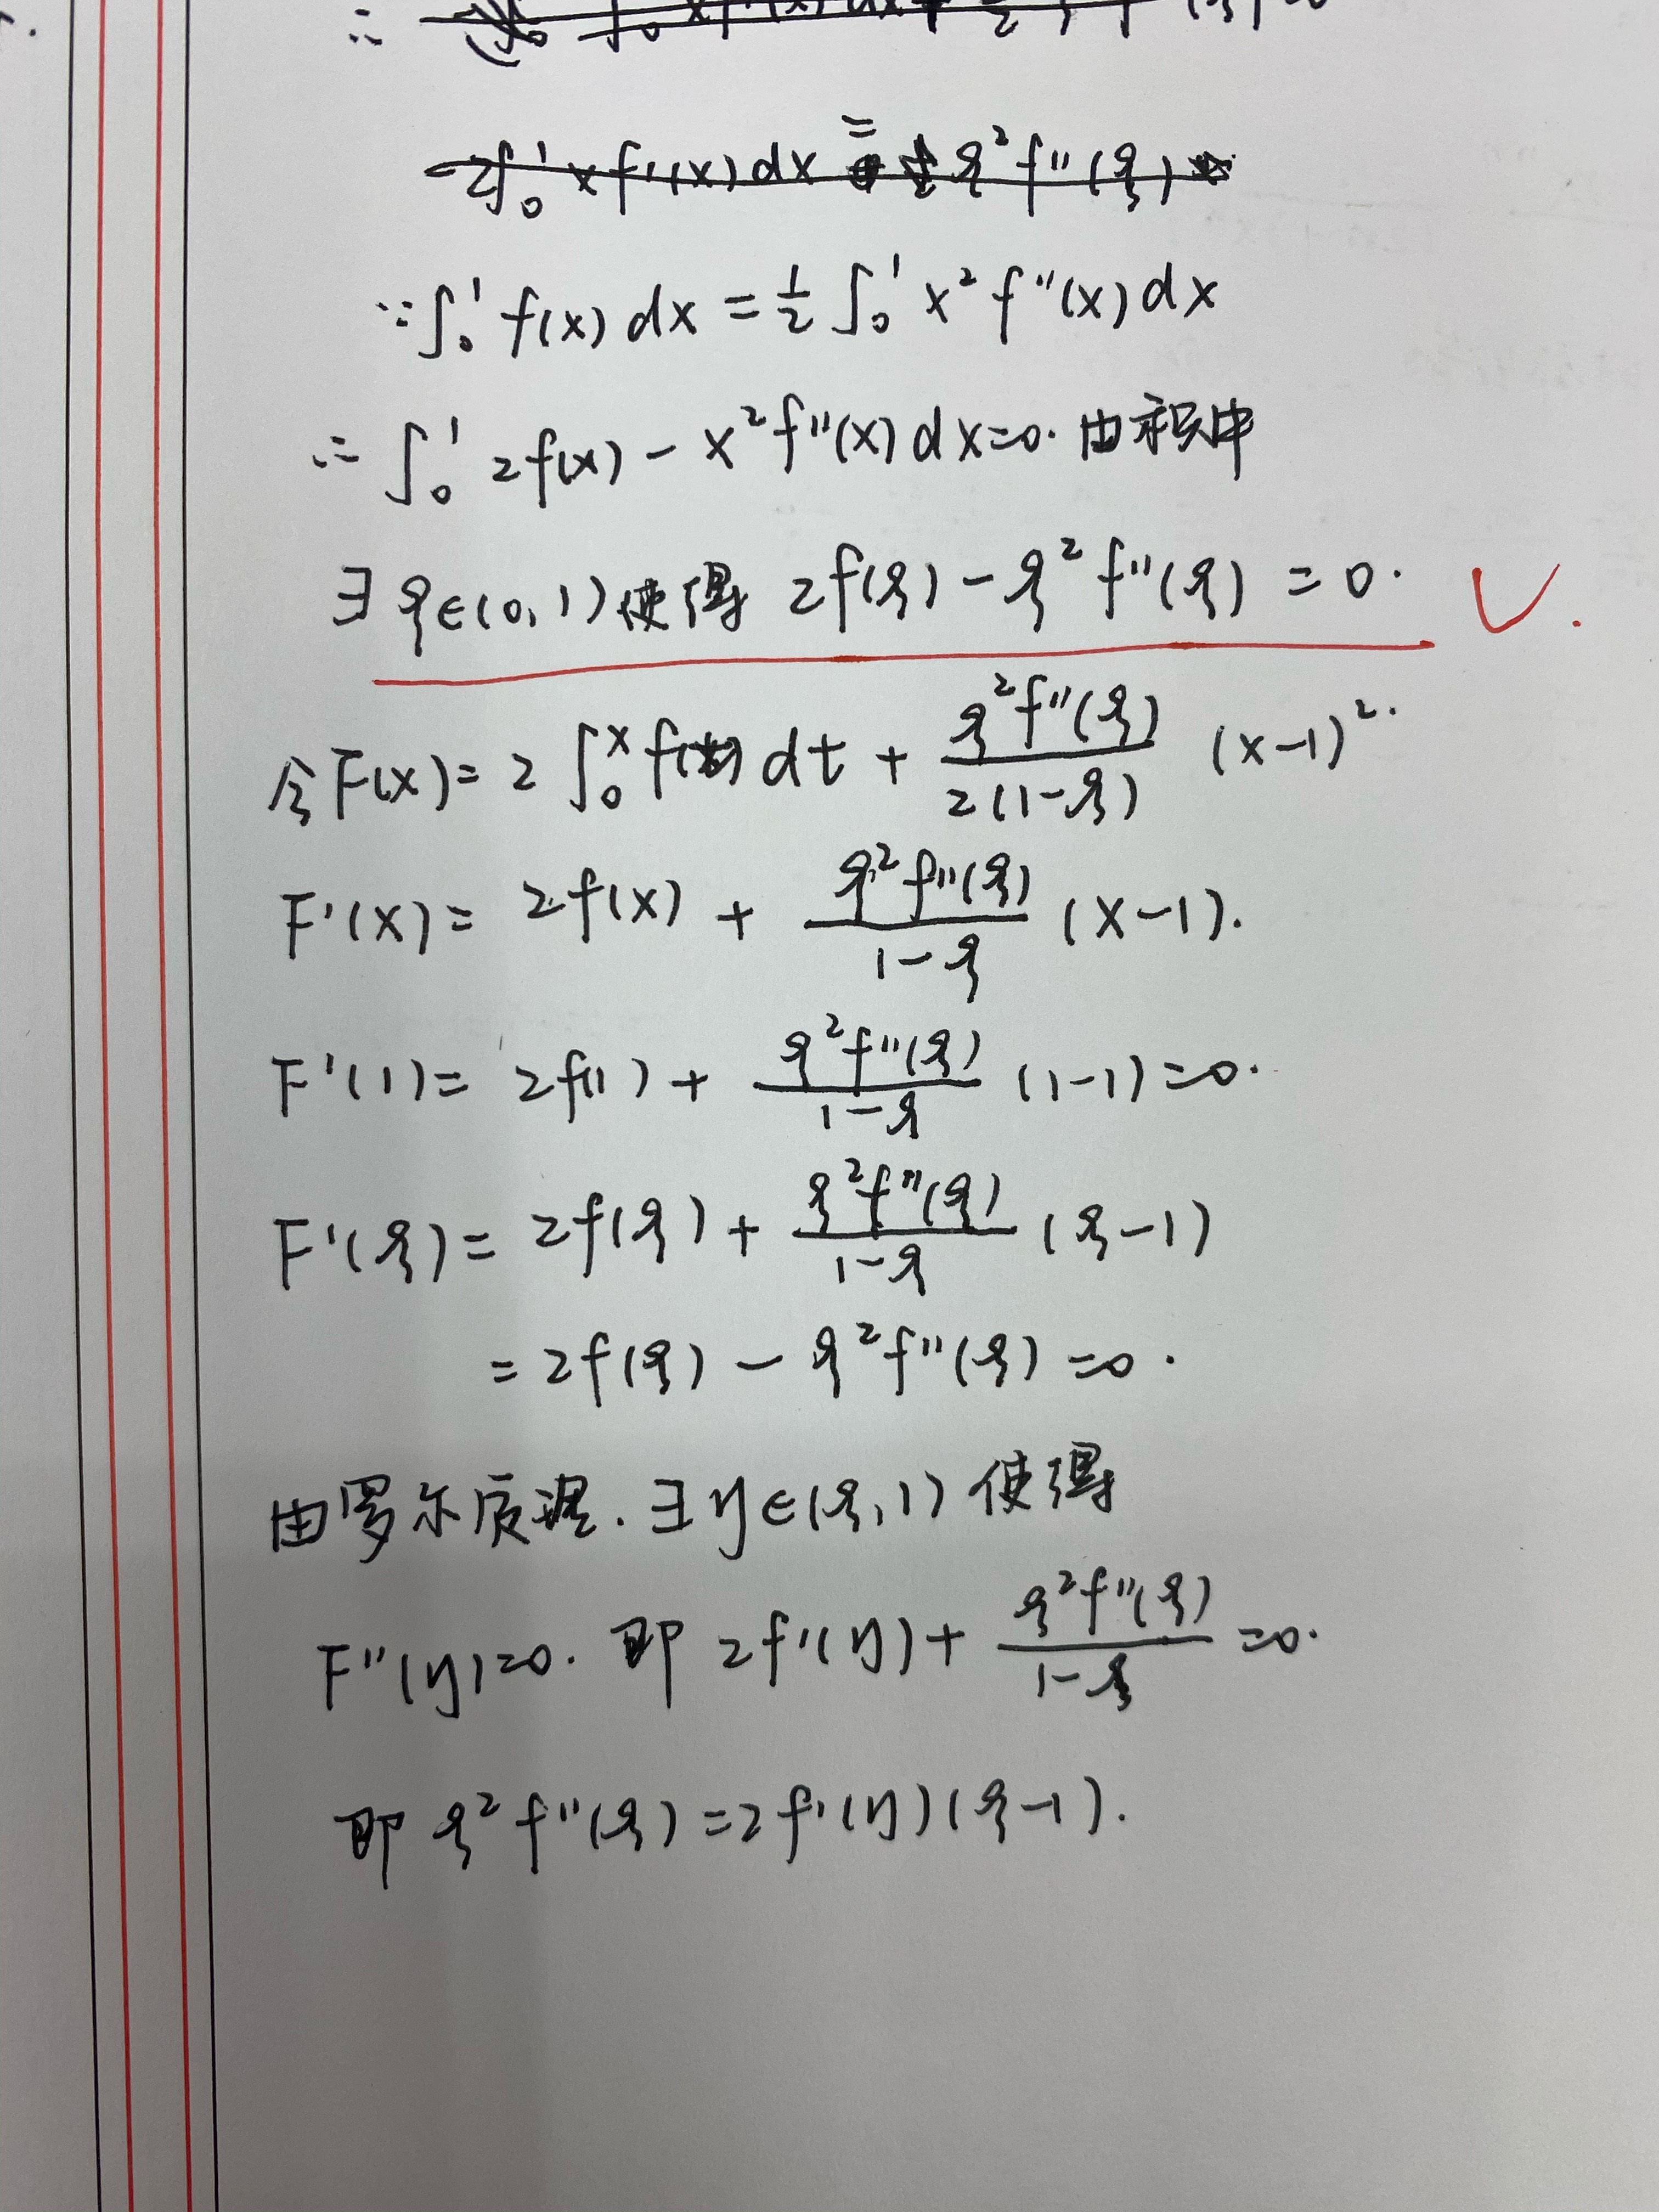 ∴
-2∫₀¹ x f'(x) dx = ξ² f''(ξ)
∵ ∫₀¹ f(x) dx = 1/2 ∫₀¹ x² f''(x) dx
∴ ∫₀¹ 2f(x) - x² f''(x) dx = 0. 由积中
∃ ξ∈(0,1) 使得 2f(ξ) - ξ² f''(ξ) = 0. √.
令 F(x) = 2 ∫₀ˣ f(t) dt + ξ² f''(ξ) / 2(1-ξ) (x-1)².
F'(x) = 2f(x) + ξ² f''(ξ) / 1-ξ (x-1).
F'(1) = 2f(1) + ξ² f''(ξ) / 1-ξ (1-1) = 0.
F'(ξ) = 2f(ξ) + ξ² f''(ξ) / 1-ξ (ξ-1)
= 2f(ξ) - ξ² f''(ξ) = 0.
由罗尔定理. ∃ η∈(ξ,1) 使得
F''(η) = 0. 即 2f'(η) + ξ² f''(ξ) / 1-ξ = 0.
即 ξ² f''(ξ) = 2f'(η)(ξ-1).